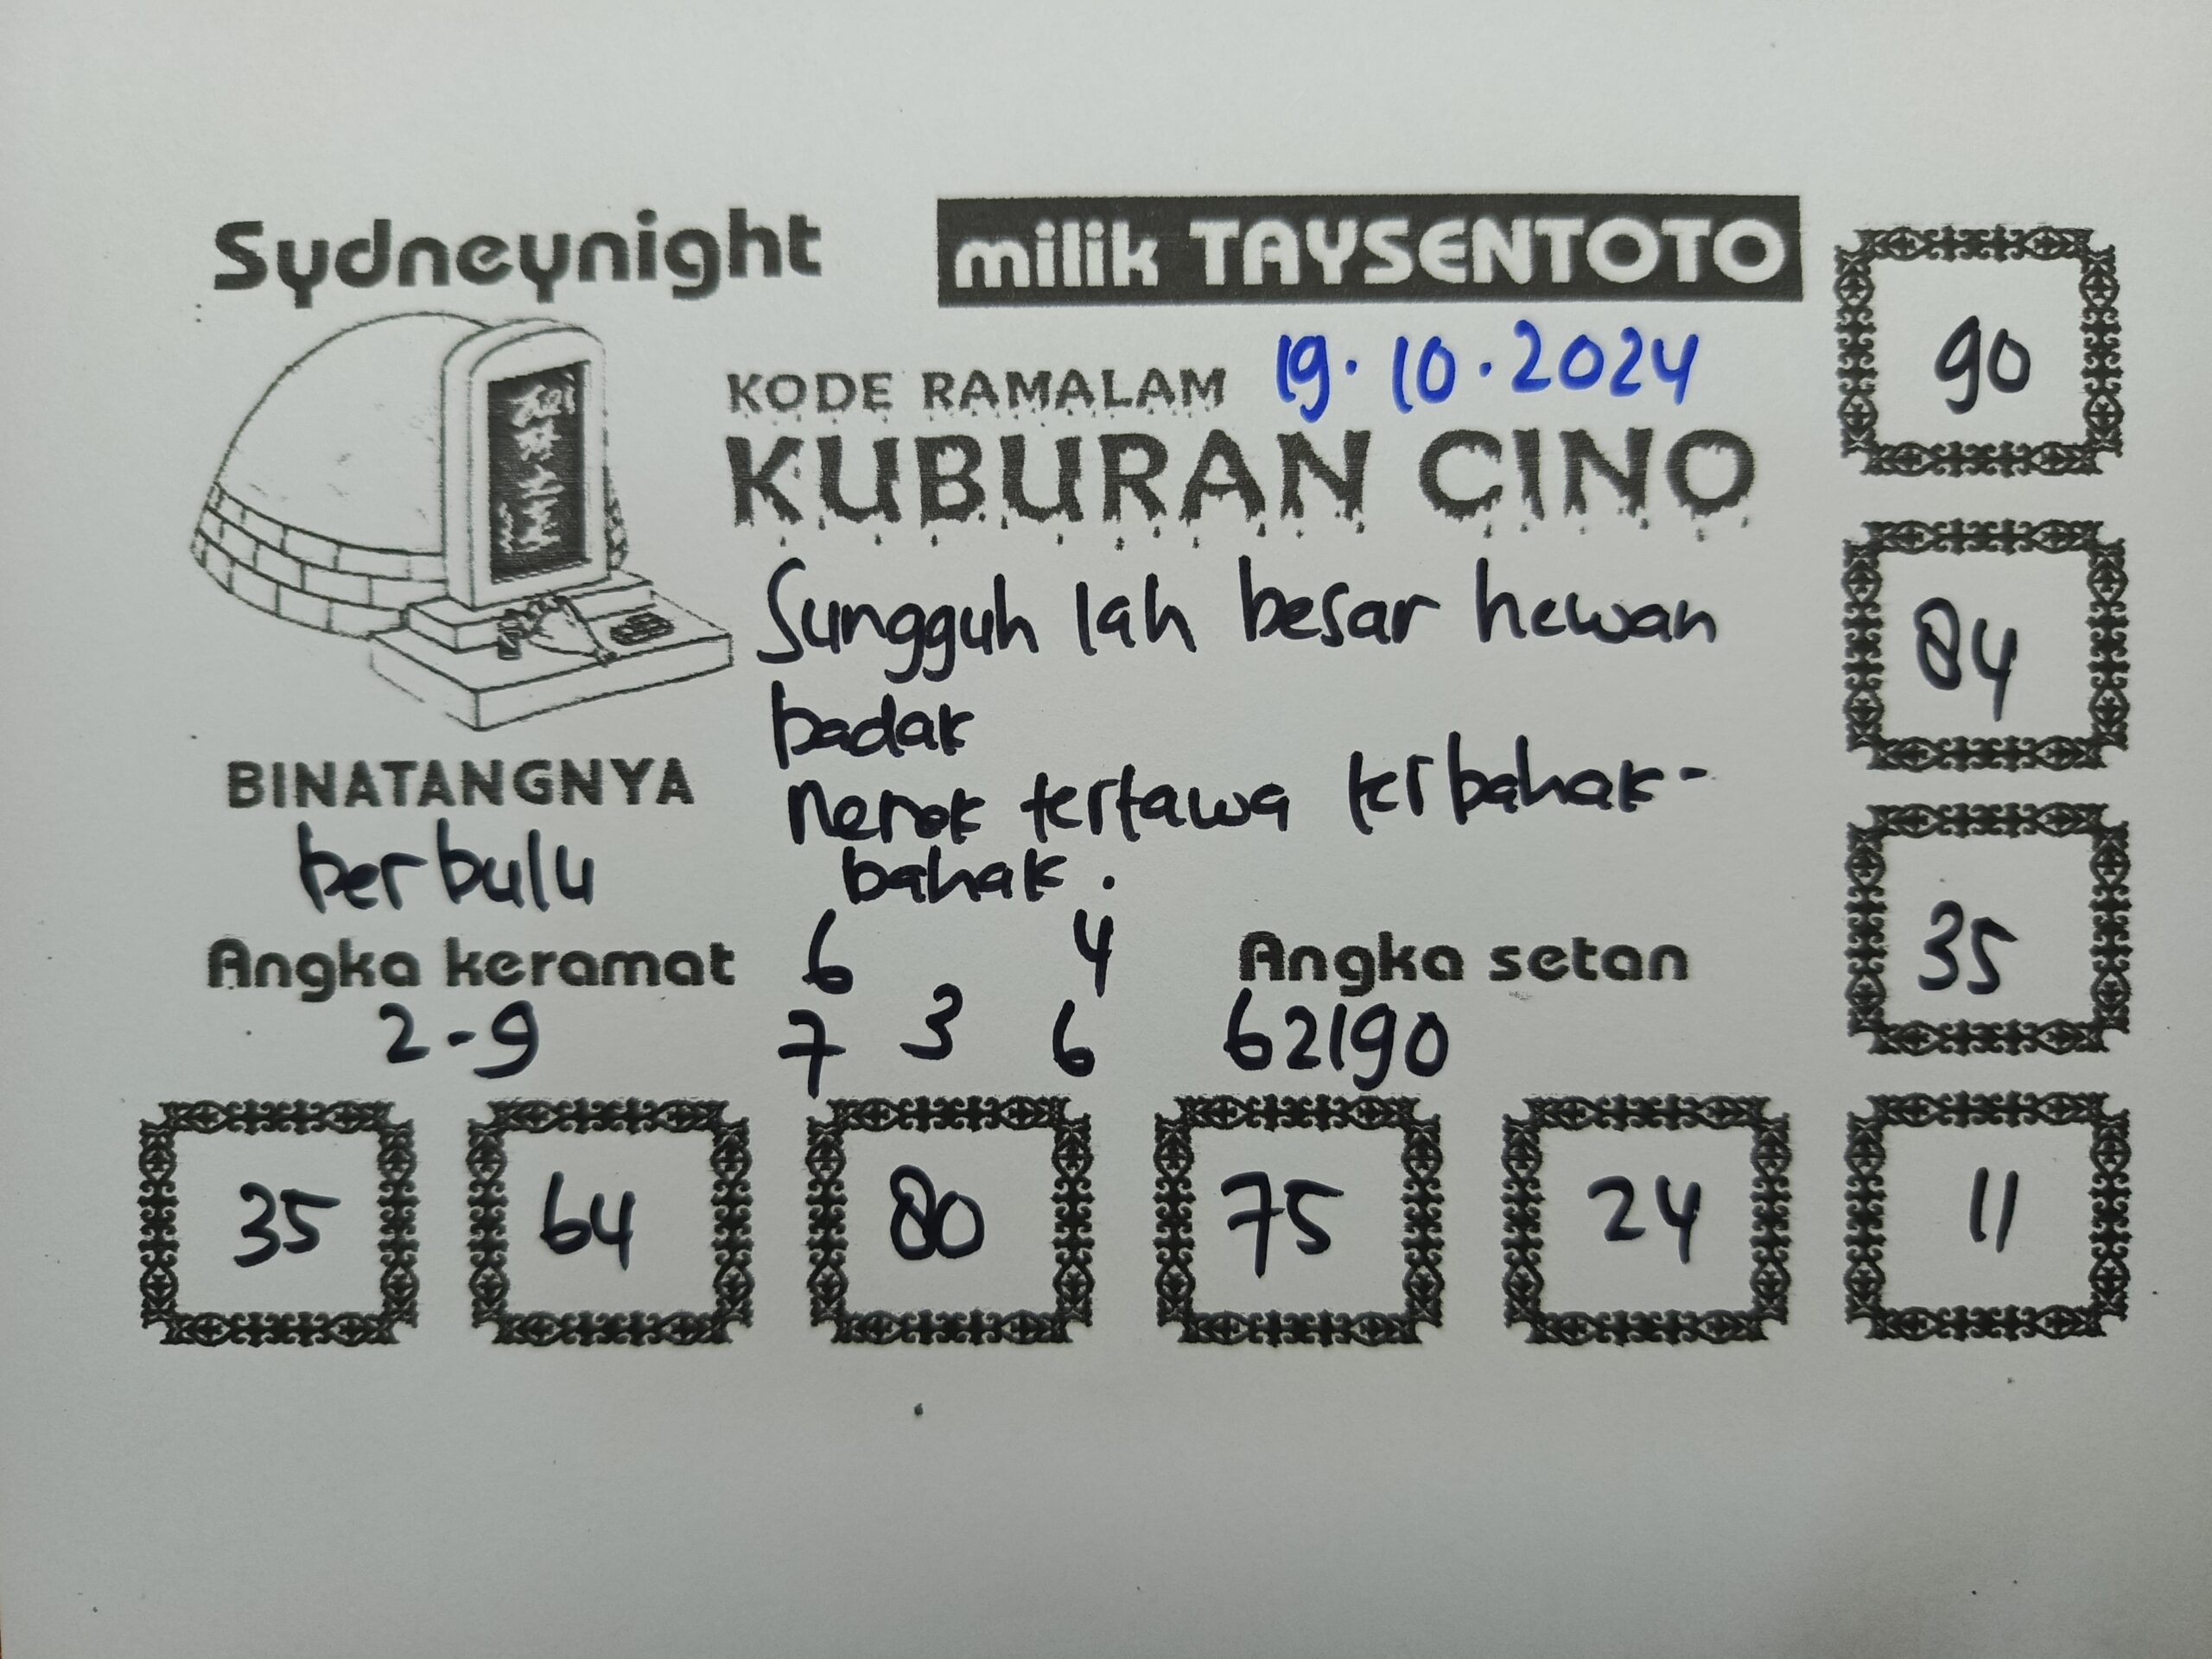 Sydneynight
milik TAYSENTOTO
KODE RAMALAM 19.10.2024
KUBURAN CINO
Sungguh lah besar hewan
badak
Nenek tertawa terbahak-
bahak.
BINATANGNYA
berbulu
Angka keramat
2-9
6 4
7 3 6
Angka setan
62190
90
84
35
35 64 80 75 24 11